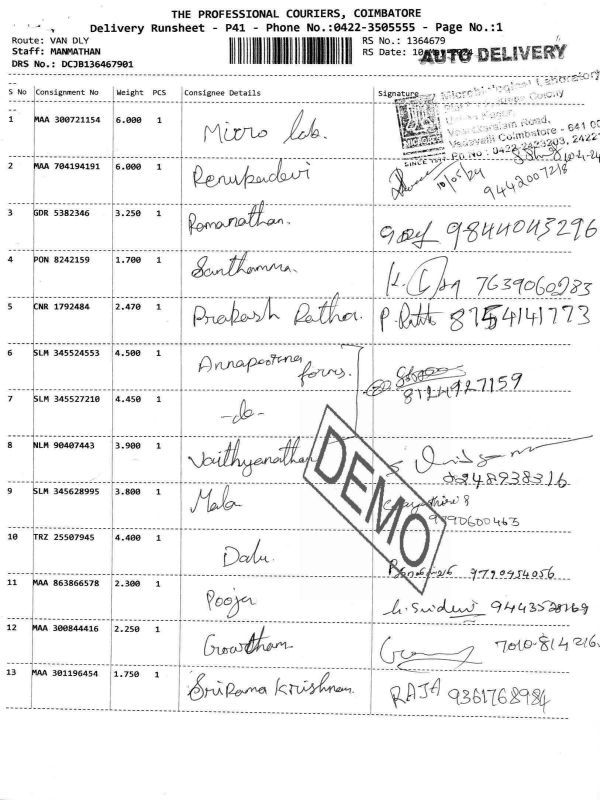 THE PROFESSIONAL COURIERS, COIMBATORE
Delivery Runsheet - P41 - Phone No.:0422-3505555 - Page No.:1
Route: VAN DLY
Staff: MANMATHAN
DRS No.: DCJB136467901
RS No.: 1364679
RS Date: 10
AUTO DELIVERY
S No Consignment No Weight PCS Consignee Details Signature
1 MAA 300721154 6.000 1 Micro lab.
Microbiological Laboratory
Colony
Road,
Coimbatore - 641 00
SINCE
2 MAA 704194191 6.000 1 Renukadevi 10/05/24 9442007218
3 GDR 5382346 3.250 1 Ramanathan. 9844043296
4 PON 8242159 1.700 1 Santhamma. 7639060283
5 CNR 1792484 2.470 1 Prakash Rathor. P. 8754141773
6 SLM 345524553 4.500 1 Annapoorna forms. 8124927159
7 SLM 345527210 4.450 1 -do-
8 NLM 90407443 3.900 1 Vaithyanathan
9 SLM 345628995 3.800 1 Mala
DEMO
10 TRZ 25507945 4.400 1 Dalu. 9790954056
11 MAA 863866578 2.300 1 Pooja h. Sridevi
12 MAA 300844416 2.250 1 Gowtham 7010-814216.
13 MAA 301196454 1.750 1 Sri Rama Krishnan. RAJA 9361768984